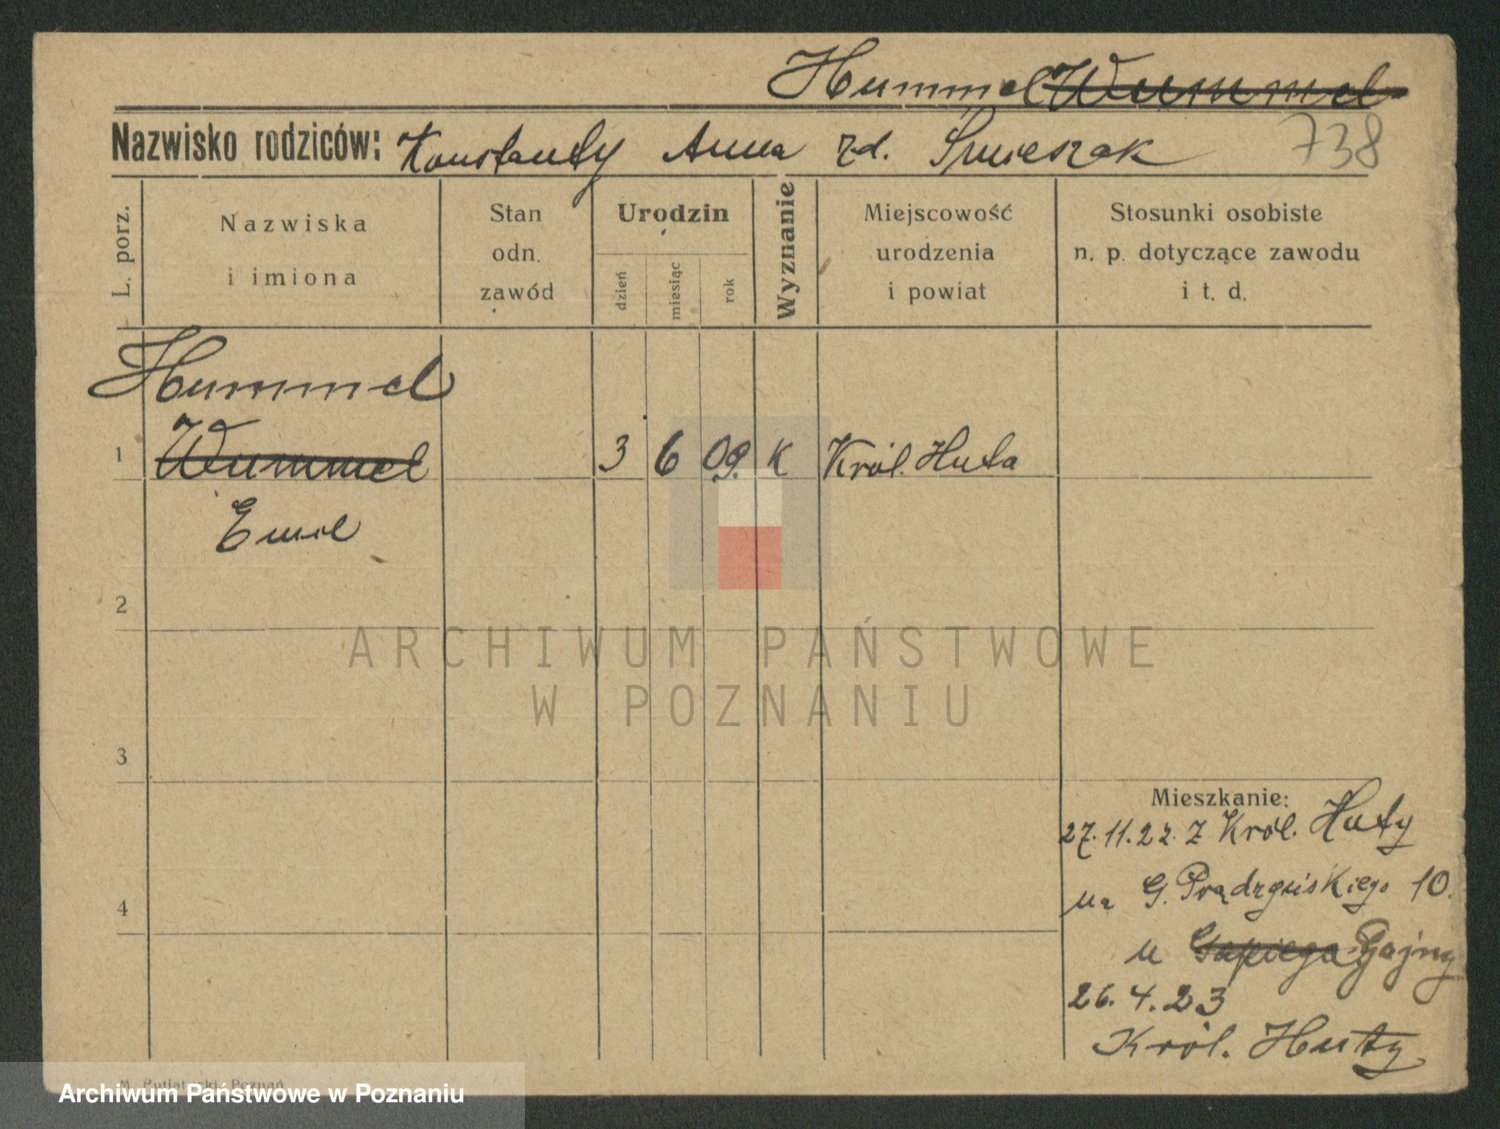 Hummel Wummel
Nazwisko rodziców: Konstanty Anna zd. Śmieszak 738
L. porz.
Nazwiska
i imiona
Stan
odn.
zawód
Urodzin
dzień
miesiąc
rok
Wyznanie
Miejscowość
urodzenia
i powiat
Stosunki osobiste
n. p. dotyczące zawodu
i t. d.
Hummel
1 Wummel 3 6 09. K Król. Huta
Emil
2
3
4
Mieszkanie:
27.11.22. z Król. Huty
na G. Prądzyńskiego 10.
u Sapiega Gajny
26.4.23
Król. Huty
ARCHIWUM PAŃSTWOWE
W POZNANIU
Archiwum Państwowe w Poznaniu